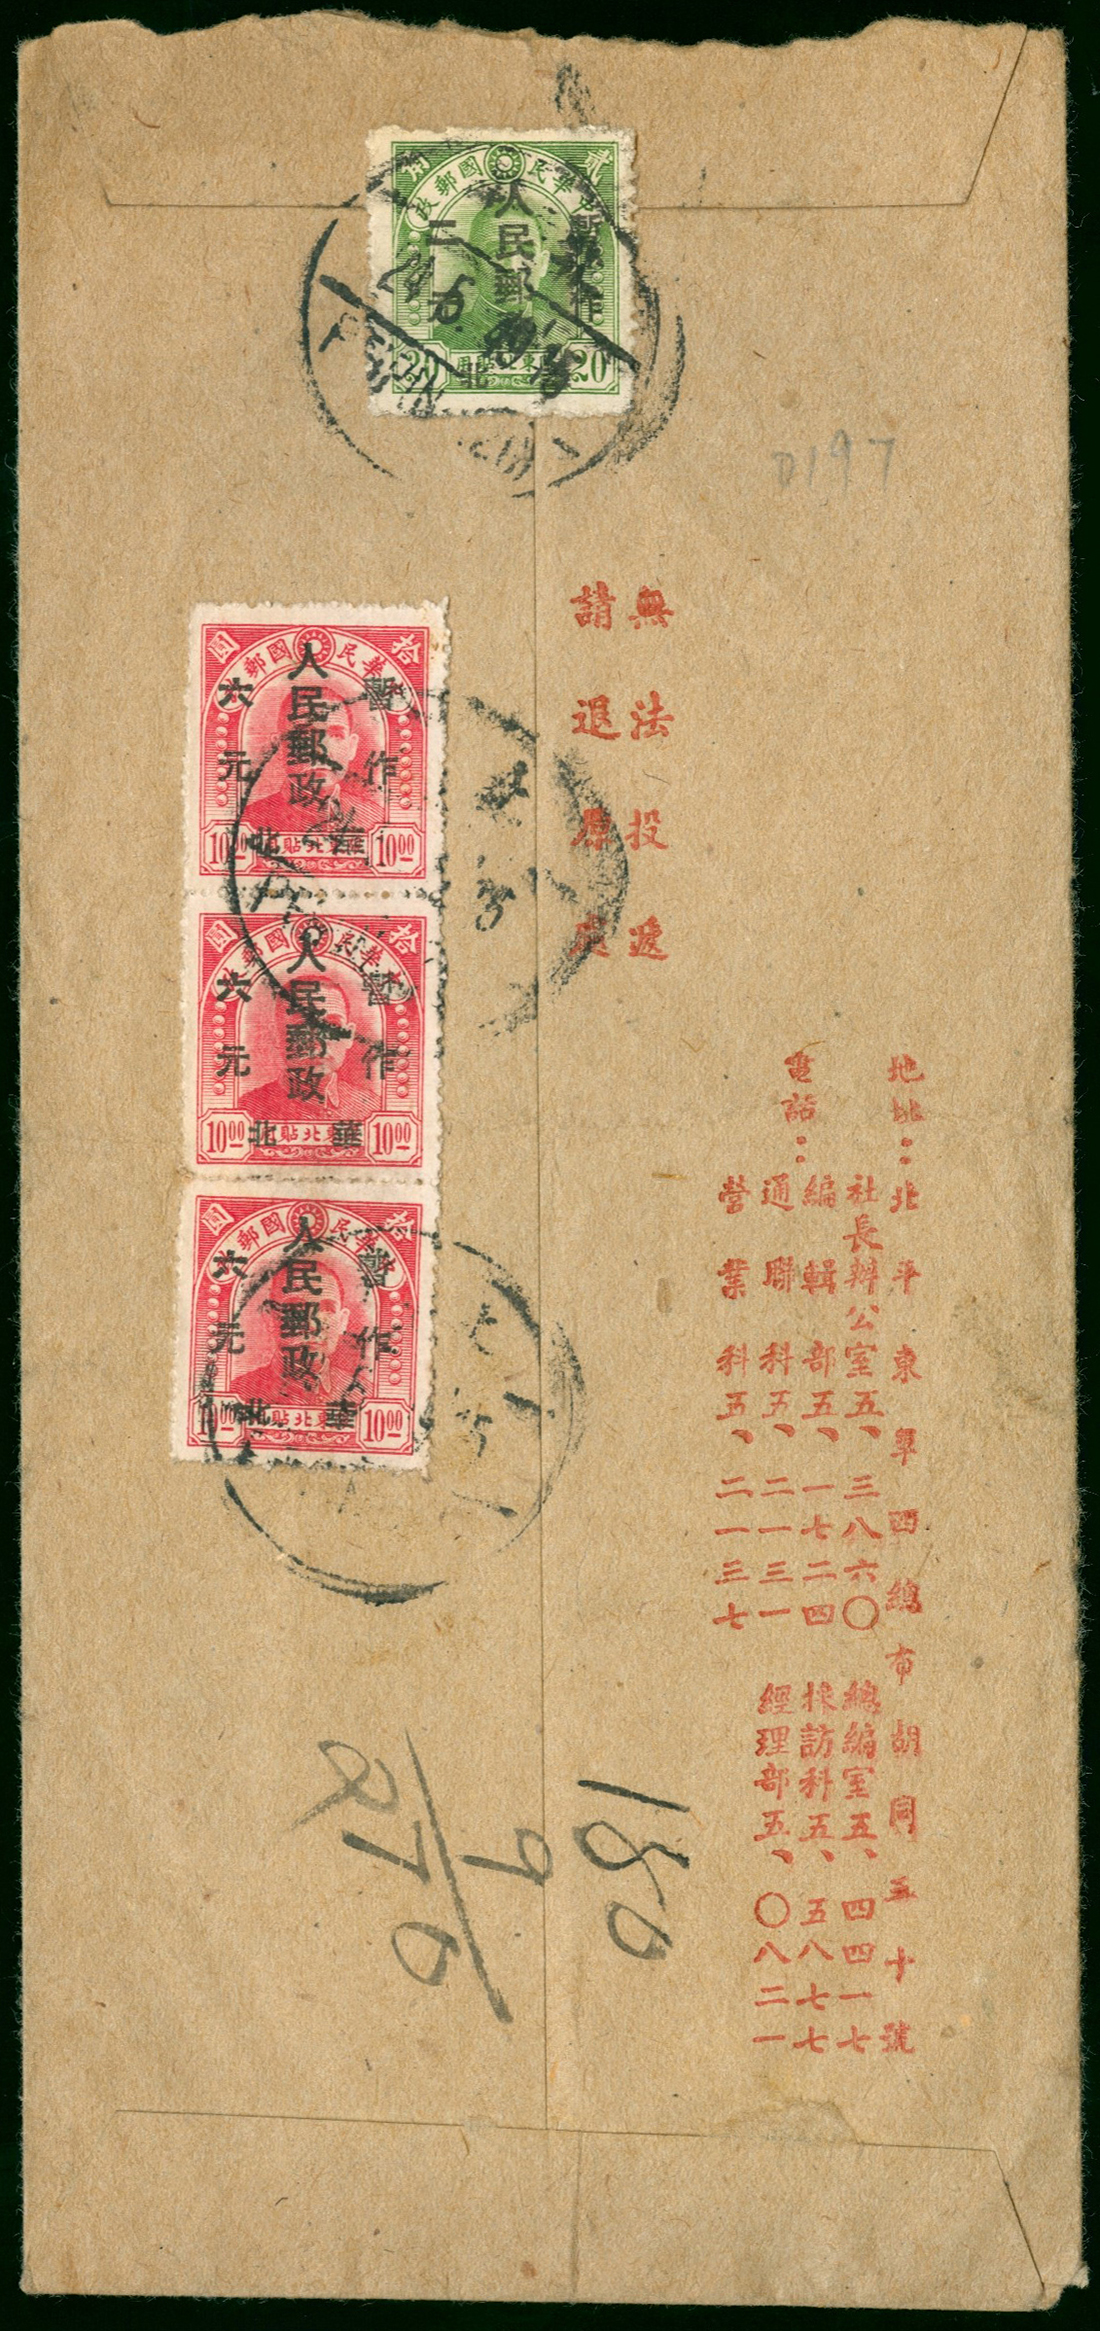 中華民國郵政
貳角
人民郵政
暫作
二元
華北
20
20
0197
無法投遞
請退原處
中華民國郵政
拾圓
人民郵政
暫作
六元
華北
限東北貼用
10.00
10.00
中華民國郵政
拾圓
人民郵政
暫作
六元
華北
限東北貼用
10.00
10.00
中華民國郵政
拾圓
人民郵政
暫作
六元
華北
限東北貼用
10.00
10.00
地址：北平東單西總布胡同五十號
社長辦公室五、三八六〇 總編室五、四四一七
電話：編輯部五、一七二四 採訪科五、五八七七
通聯科五、二一三一 經理部五、〇八二一
營業科五、二一三七
180
9